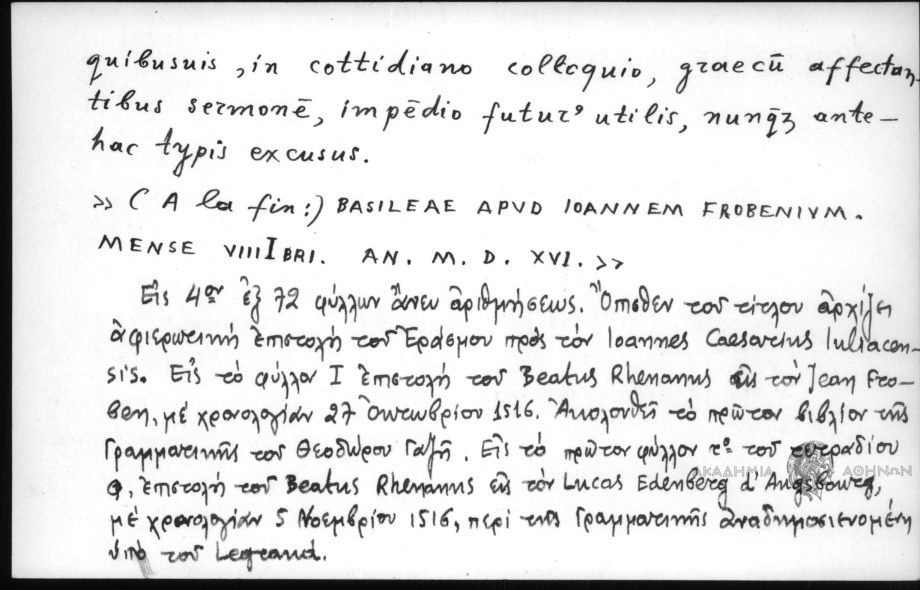 quibusuis, in cottidiano colloquio, graecū affectan-
tibus sermonē, impēdio futur⁹ utilis, nunq̄ʒ ante-
hac typis excusus.
» ( A la fin:) BASILEAE APVD IOANNEM FROBENIVM.
MENSE VIIIIBRI. AN. M. D. XVI. »
Εἰς 4ον ἐξ 72 φύλλων ἄνευ ἀριθμήσεως. Ὄπισθεν τοῦ τίτλου ἀρχίζει
ἀφιερωτική ἐπιστολή τοῦ Ἐράσμου πρός τόν Ioannes Caesarius Iuliacen-
sis. Εἰς τό φύλλον I ἐπιστολή τοῦ Beatus Rhenanus εἰς τόν Jean Fro-
ben, μέ χρονολογίαν 27 Ὀκτωβρίου 1516. Ἀκολουθεῖ τό πρῶτον βιβλίον τῆς
Γραμματικῆς τοῦ Θεοδώρου Γαζῆ. Εἰς τό πρῶτον φύλλον τοῦ τετραδίου
φ, ἐπιστολή τοῦ Beatus Rhenanus εἰς τόν Lucas Edenberg d'Augsbourg,
μέ χρονολογίαν 5 Νοεμβρίου 1516, περί τῆς Γραμματικῆς ἀναδημοσιευομένη
ὑπό τοῦ Legrand.
ΑΚΑΔΗΜΙΑ ΑΘΗΝΩΝ